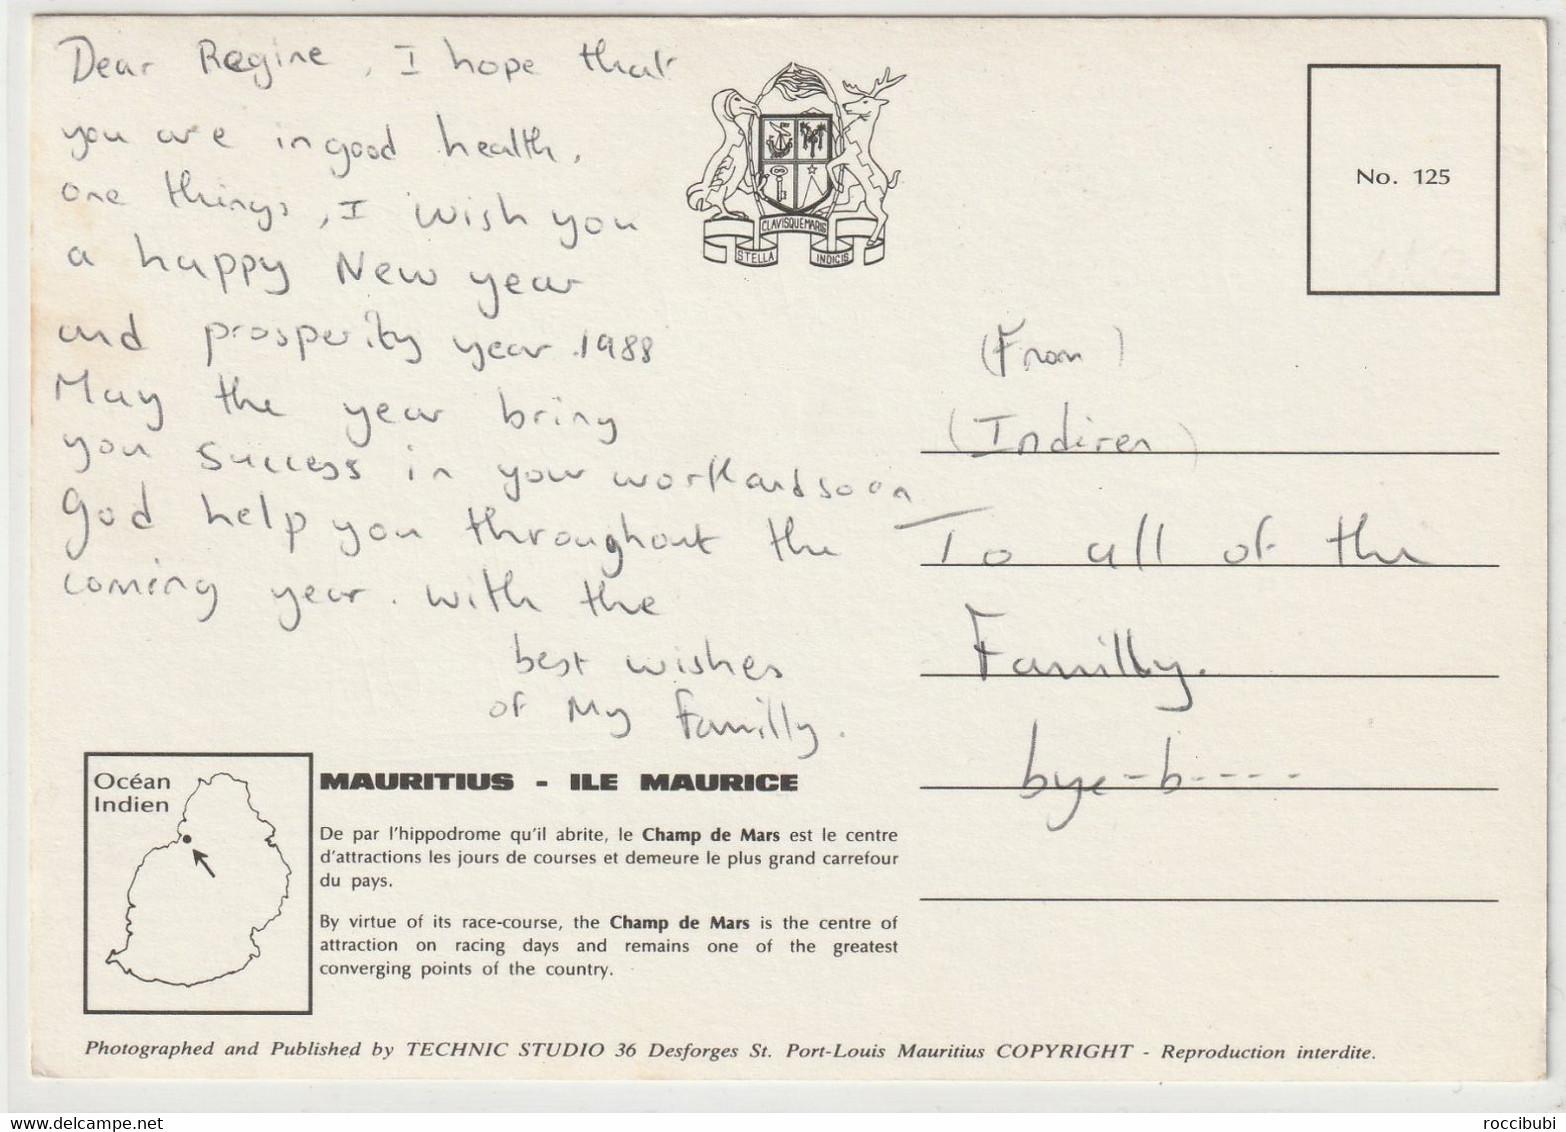 Dear Regine, I hope that
you are in good health,
one things, I wish you
a happy New year
and prosperity year 1988
May the year bring
you success in your work and soon
god help you throughout the
coming year. With the
best wishes
of My Familly.
CLAVISQUE MARIS
STELLA INDICIS
No. 125
(From)
(Indiren)
To all of the
Familly.
bye-b----
Océan
Indien
MAURITIUS - ILE MAURICE
De par l'hippodrome qu'il abrite, le Champ de Mars est le centre
d'attractions les jours de courses et demeure le plus grand carrefour
du pays.
By virtue of its race-course, the Champ de Mars is the centre of
attraction on racing days and remains one of the greatest
converging points of the country.
Photographed and Published by TECHNIC STUDIO 36 Desforges St. Port-Louis Mauritius COPYRIGHT - Reproduction interdite.
roccibubi